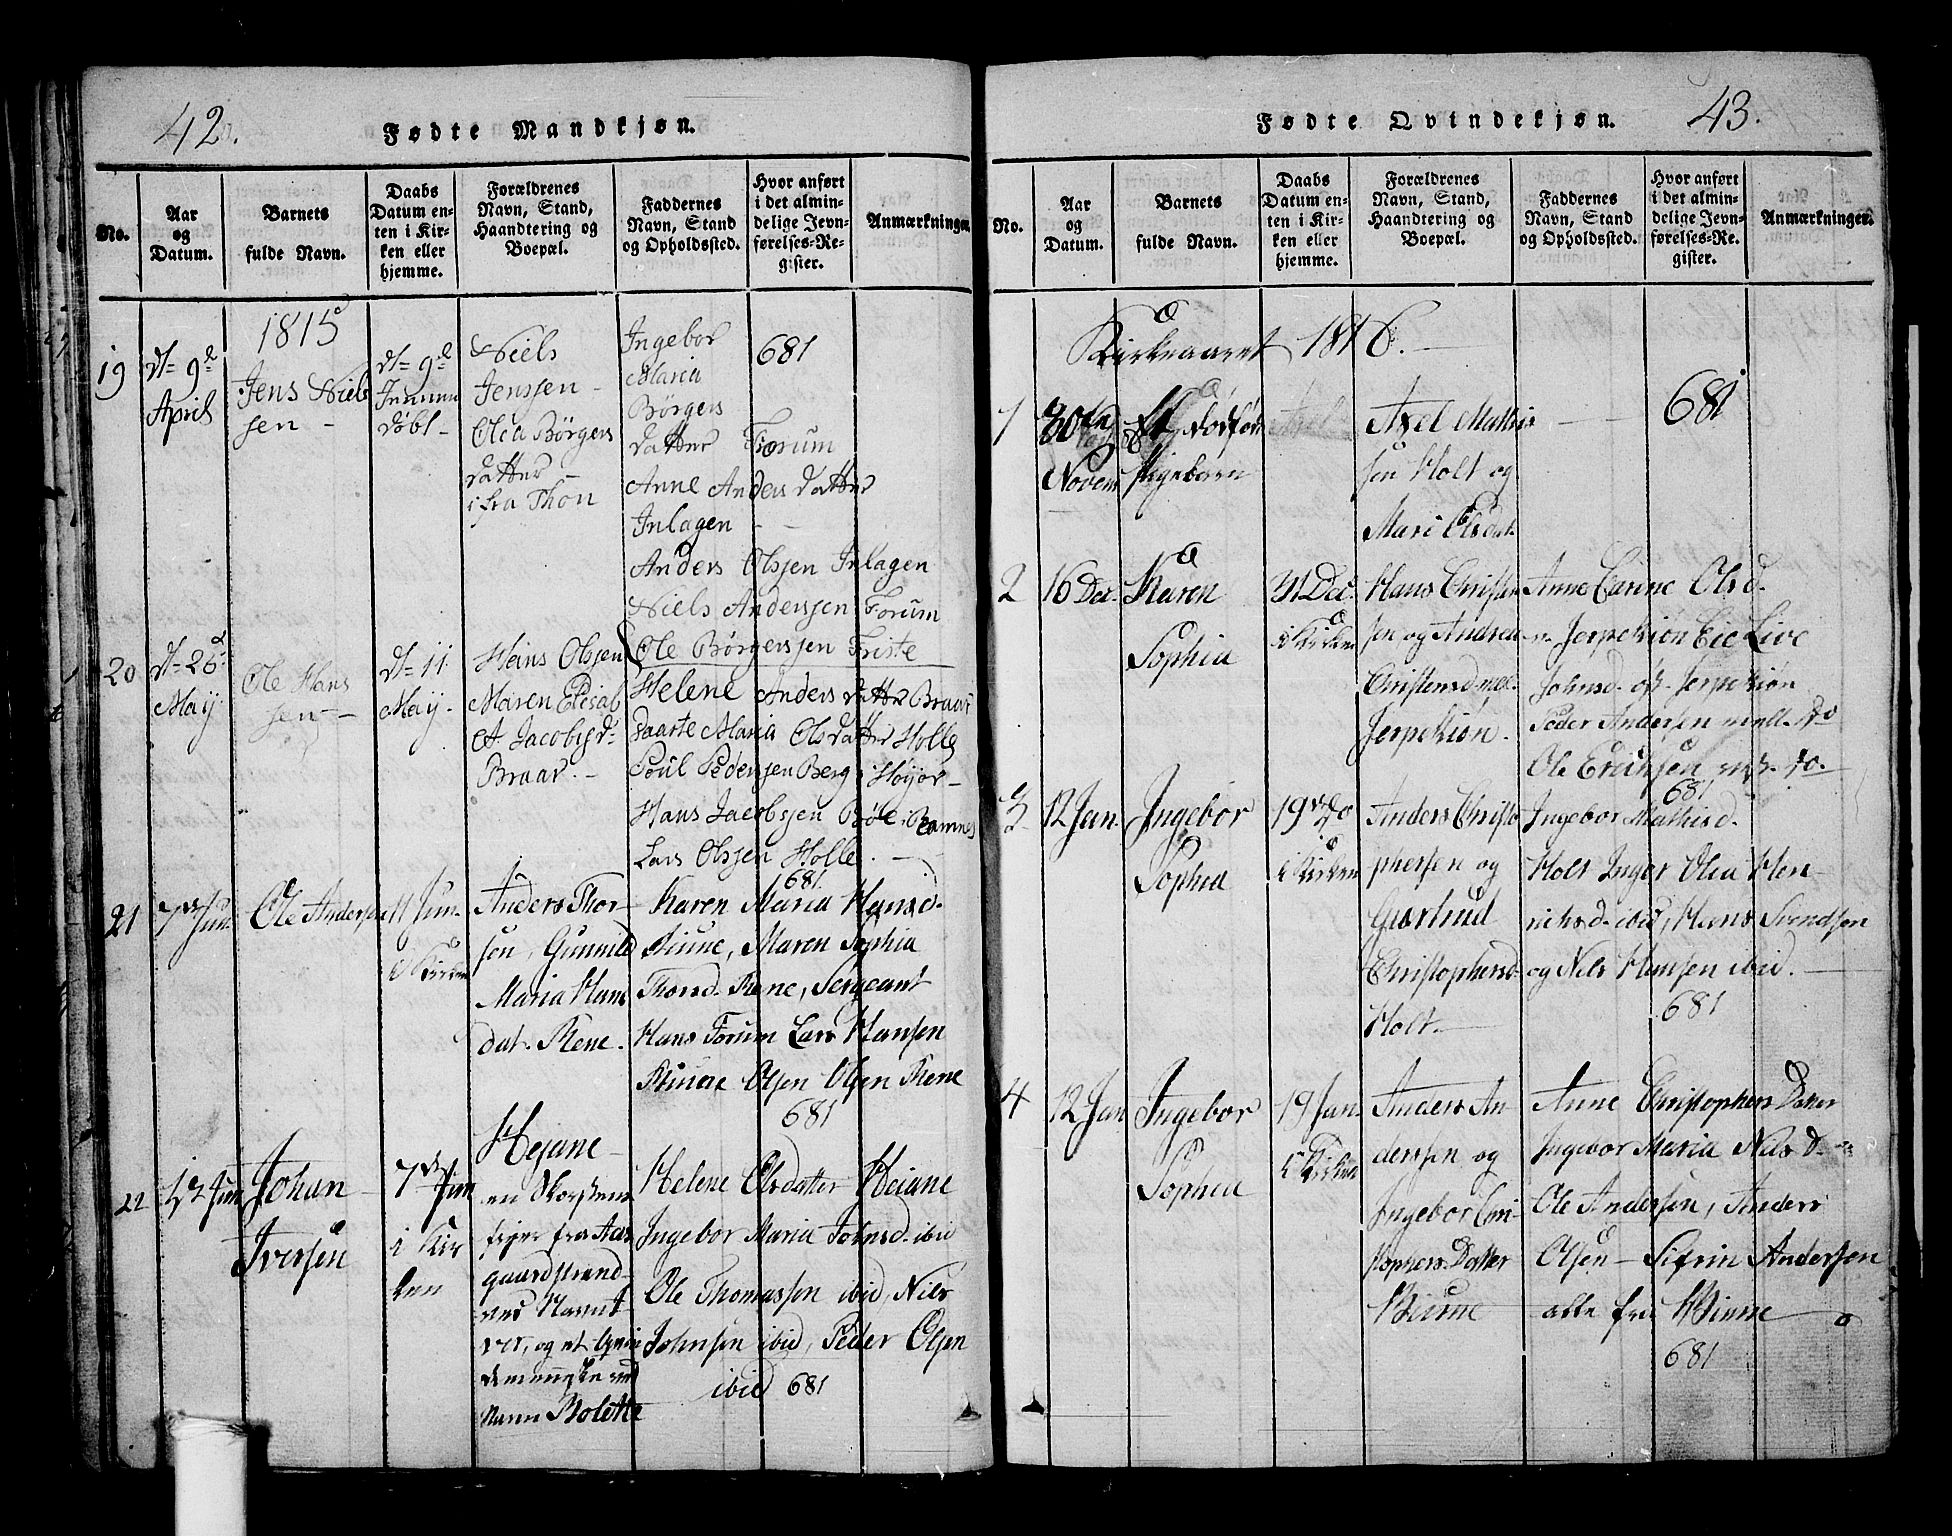 42.
Fødte Mandkjøn.
No.
Aar og Datum.
Barnets fulde Navn.
Daabs Datum enten i Kirken eller hjemme.
Forældrenes Navn, Stand, Haandtering og Boepæl.
Faddernes Navn, Stand og Opholdssted.
Hvor anført i det almindelige Jevnførelses-Register.
Anmærkninger.
1815
19
dt= 9d
April
Jens Niels
sen -
dt= 9d
døbt -
Niels
Jenssen -
Olea Børgers
datter -
i fra Thon
Ingebor
Maria
Børgers
datter Forum
Anne Anders datter
Inlagen - -
Anders Olssen Inlagen
Niels Anderssen Forum
Ole Børgerssen Friste
681
20
dt= 26d
May
Ole Hans
sen -
dt= 11
May.
Hans Olssen
Maren Elisab
et Jacobsd=
Braar. -
Helene Anders datter Braar
Paarte Maria Olsdatter Holle
Poul Pedersen Berg i Høijor -
Hans Jacobsen Bøle i
Lars Olssen Holle. -
681.
21
7de Jun.
Ole Andersen
11 Jun.
i Kirken
Anders Thor-
sen, Gunnild
Maria Hans
dat.
Karen Maria Hansd.
Maren Sophia
Thorsd. Sergeant
Hans Forum Lars Hansen
Olsen Olsen
681
22
Jun
Johan
Iversen
7de Jun
i Kir
ken
Hejane -
en
fra Aas
gaardstrand
ved Navnt
Iver, og et
ved
Navn Bolette
Helene Olsdatter Heiane
Ingebor Maria Johnsd. ibid
Ole Thomassen ibid, Nils
Johnsen ibid, Peder Olsen
ibid 681
43.
Fødte Qvindekjøn.
No.
Aar og Datum.
Barnets fulde Navn.
Daabs Datum enten i Kirken eller hjemme.
Forældrenes Navn, Stand, Haandtering og Boepæl.
Faddernes Navn, Stand og Opholdssted.
Hvor anført i det almindelige Jevnførelses-Re. gister.
Anmærkninger.
Kirkeaaret 1816. -
1
30te
Novem
Et dødfød
Pigebarn
Axel Mathis
sen Holt og
Mari Olsdat.
681
2
16 Dec.
Karen
Sophia
31 Dec.
i Kirken
Hans Christen
sen og Andrea
Christensd.
Jerpekiøn.
Anne Carine Olsd.
Jerpekiøn Eie Live
Johnsd. øf. Jerpekiøn
Peder Andersen do
Ole Ericksen do.
681
3
12 Jan.
Ingebor
Sophia
19 do
i Kirken
Anders Christo
phersen og
Giertrud
Christophersd.
Holt. -
Ingebor Mathisd.
Holt Inger Olea Hen-
richsd. ibid, Hans Svendsen
og Nils Hansen ibid. -
681
4
12 Jan
Ingebor
Sophia
19 Jan.
i Kirken
Anders An-
derssen og
Ingebor Chri-
stophers Datter
Anne Christophers Datter
Ingebor Maria Nilsd.
Ole Andersen, Anders
Olsen - Sifrin Andersen
alle fra
681